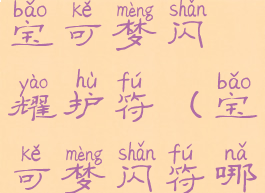 bǎo kě mèng shǎn
宝可梦闪
yào hù fú bǎo
耀护符（宝
kě mèng shǎn fú nǎ
可梦闪符哪